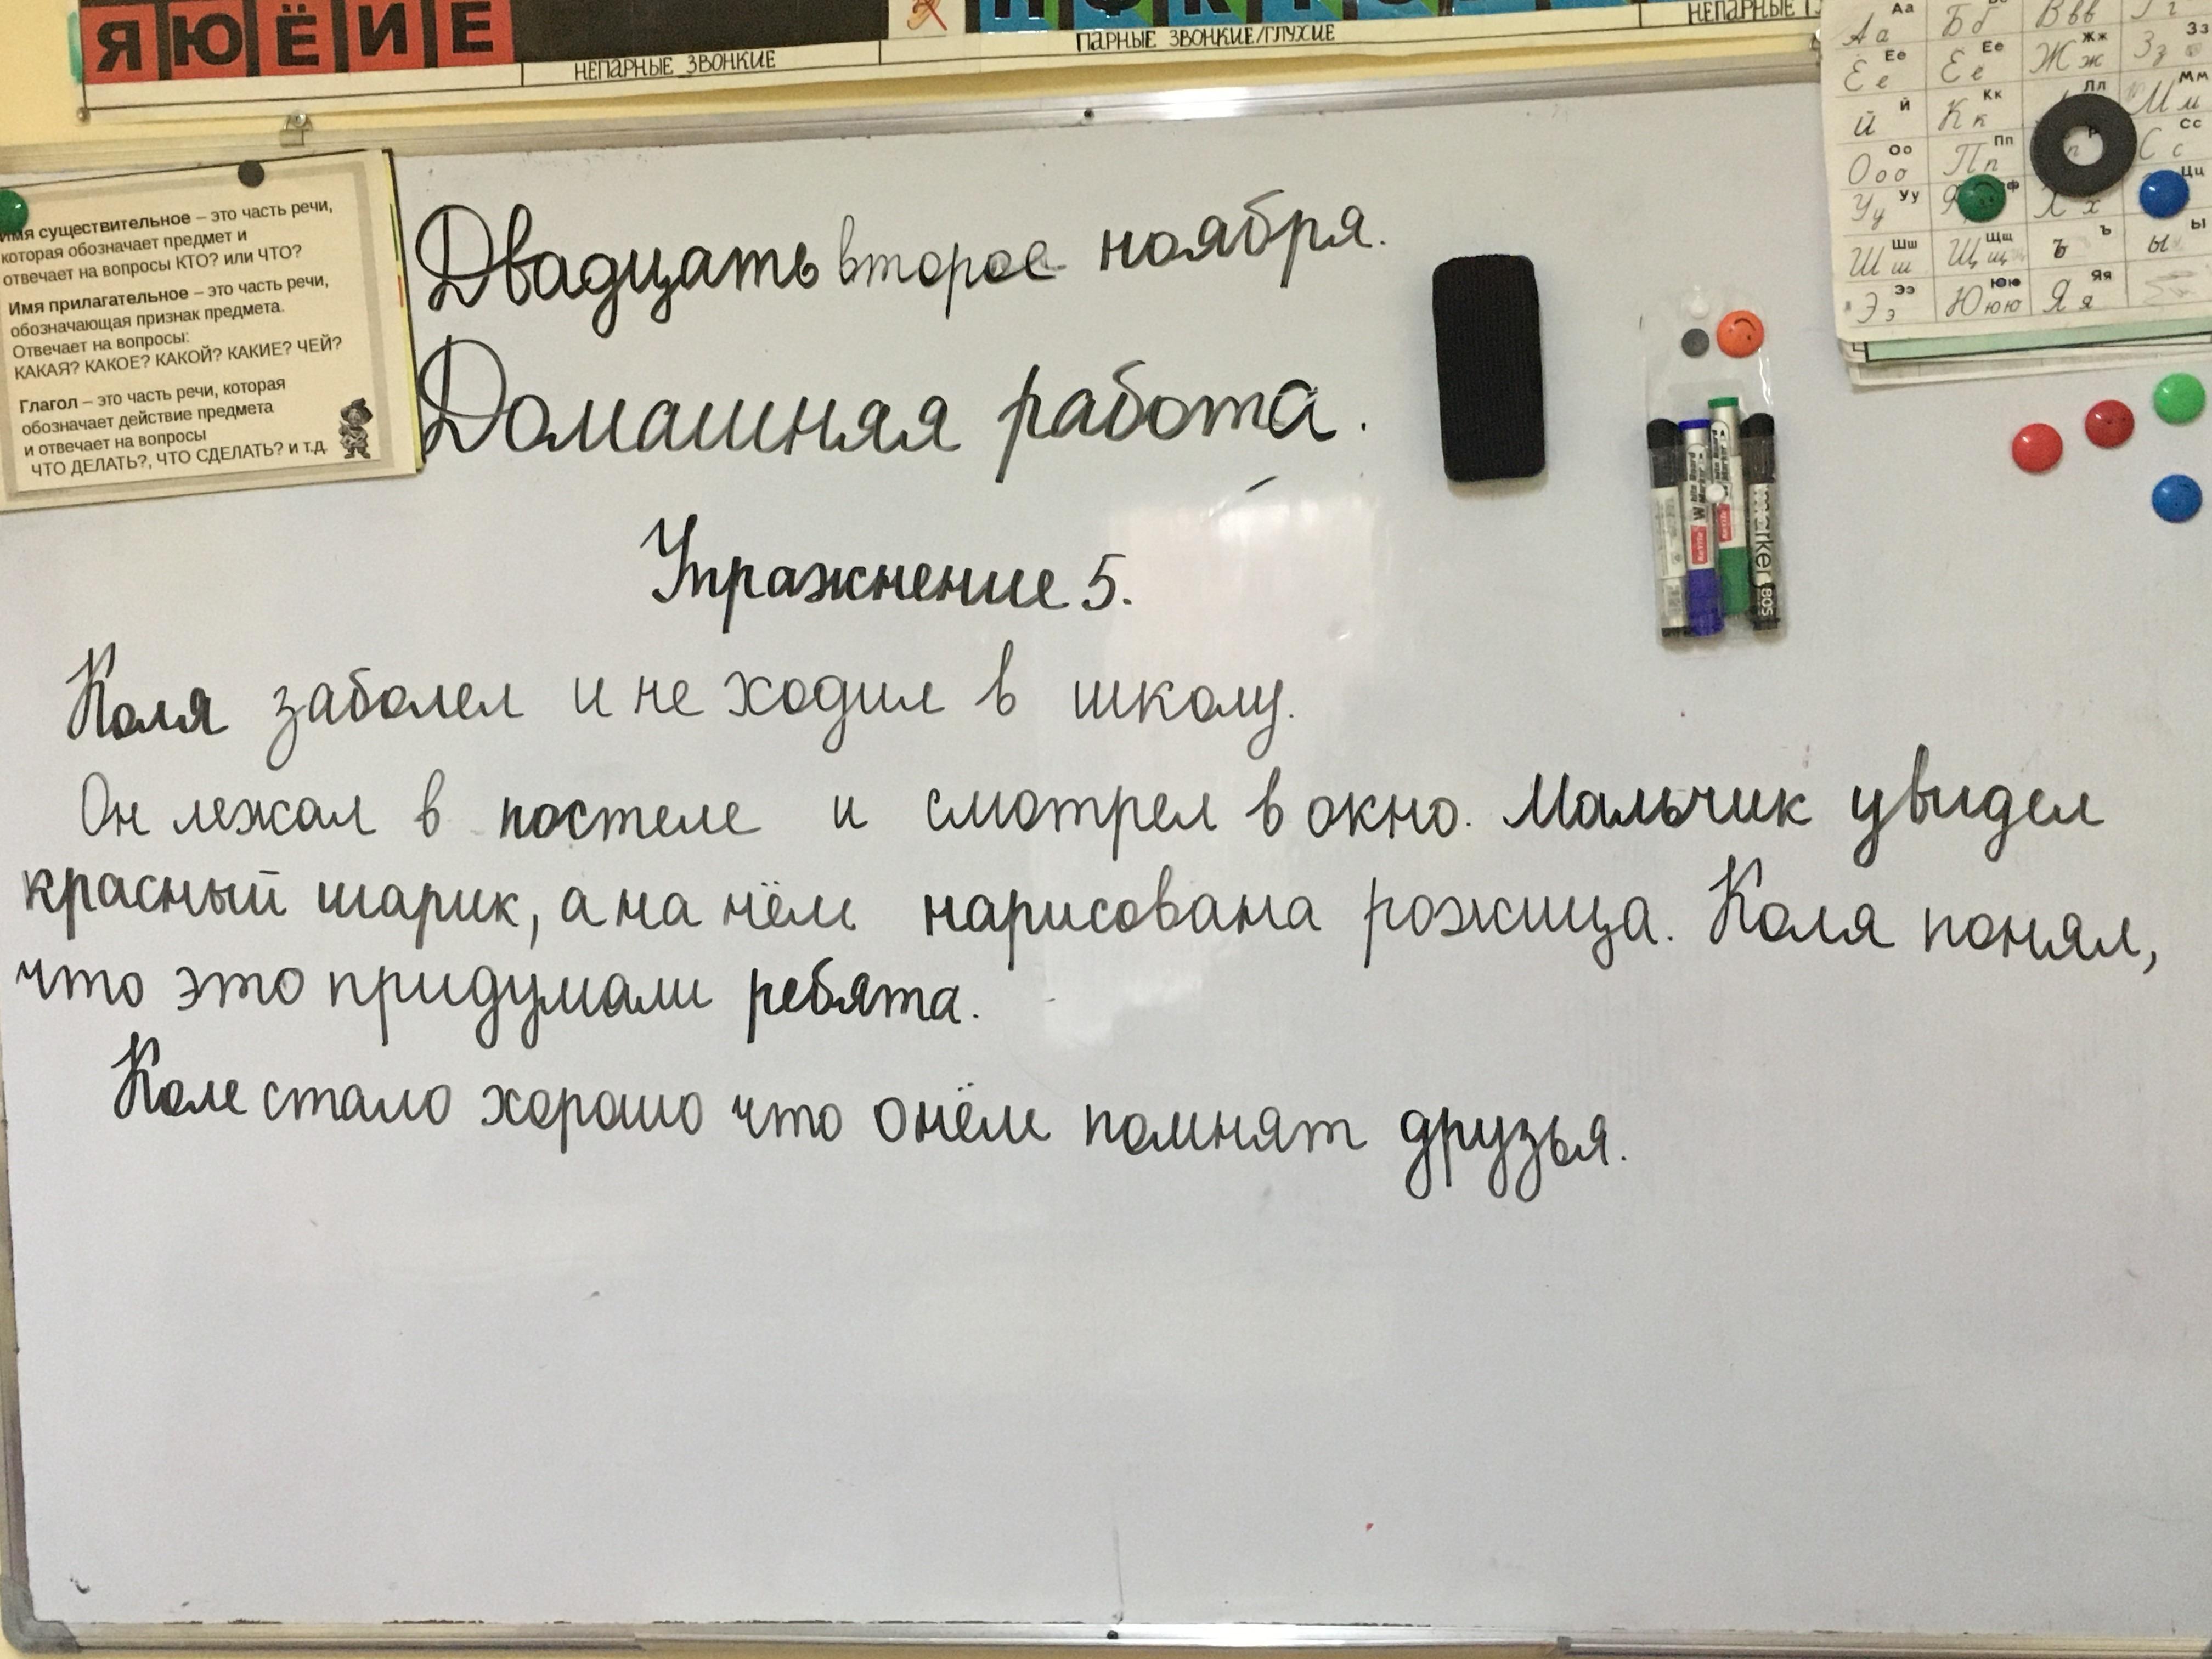 Я Ю Ё И Е
НЕПАРНЫЕ ЗВОНКИЕ
ПАРНЫЕ ЗВОНКИЕ/ГЛУХИЕ
НЕПАРНЫЕ
Имя существительное – это часть речи,
которая обозначает предмет и
отвечает на вопросы КТО? или ЧТО?
Имя прилагательное – это часть речи,
обозначающая признак предмета.
Отвечает на вопросы:
КАКАЯ? КАКОЕ? КАКОЙ? КАКИЕ? ЧЕЙ?
Глагол – это часть речи, которая
обозначает действие предмета
и отвечает на вопросы
ЧТО ДЕЛАТЬ?, ЧТО СДЕЛАТЬ? и т.д.
Двадцать второе ноября.
Домашняя работа.
Упражнение 5.
Коля заболел и не ходил в школу.
Он лежал в постеле и смотрел в окно. Мальчик увидел
красный шарик, а на нём нарисована рожица. Коля понял,
что это придумали ребята.
Коле стало хорошо что о нём помнят друзья.
Аа Вв Гг
Ее Её Жж Зз
Й Кк Лл Мм
Оо Пп Сс
Уу Цц
Шш Щщ Ъ Ы
Ээ Юю Яя
marker